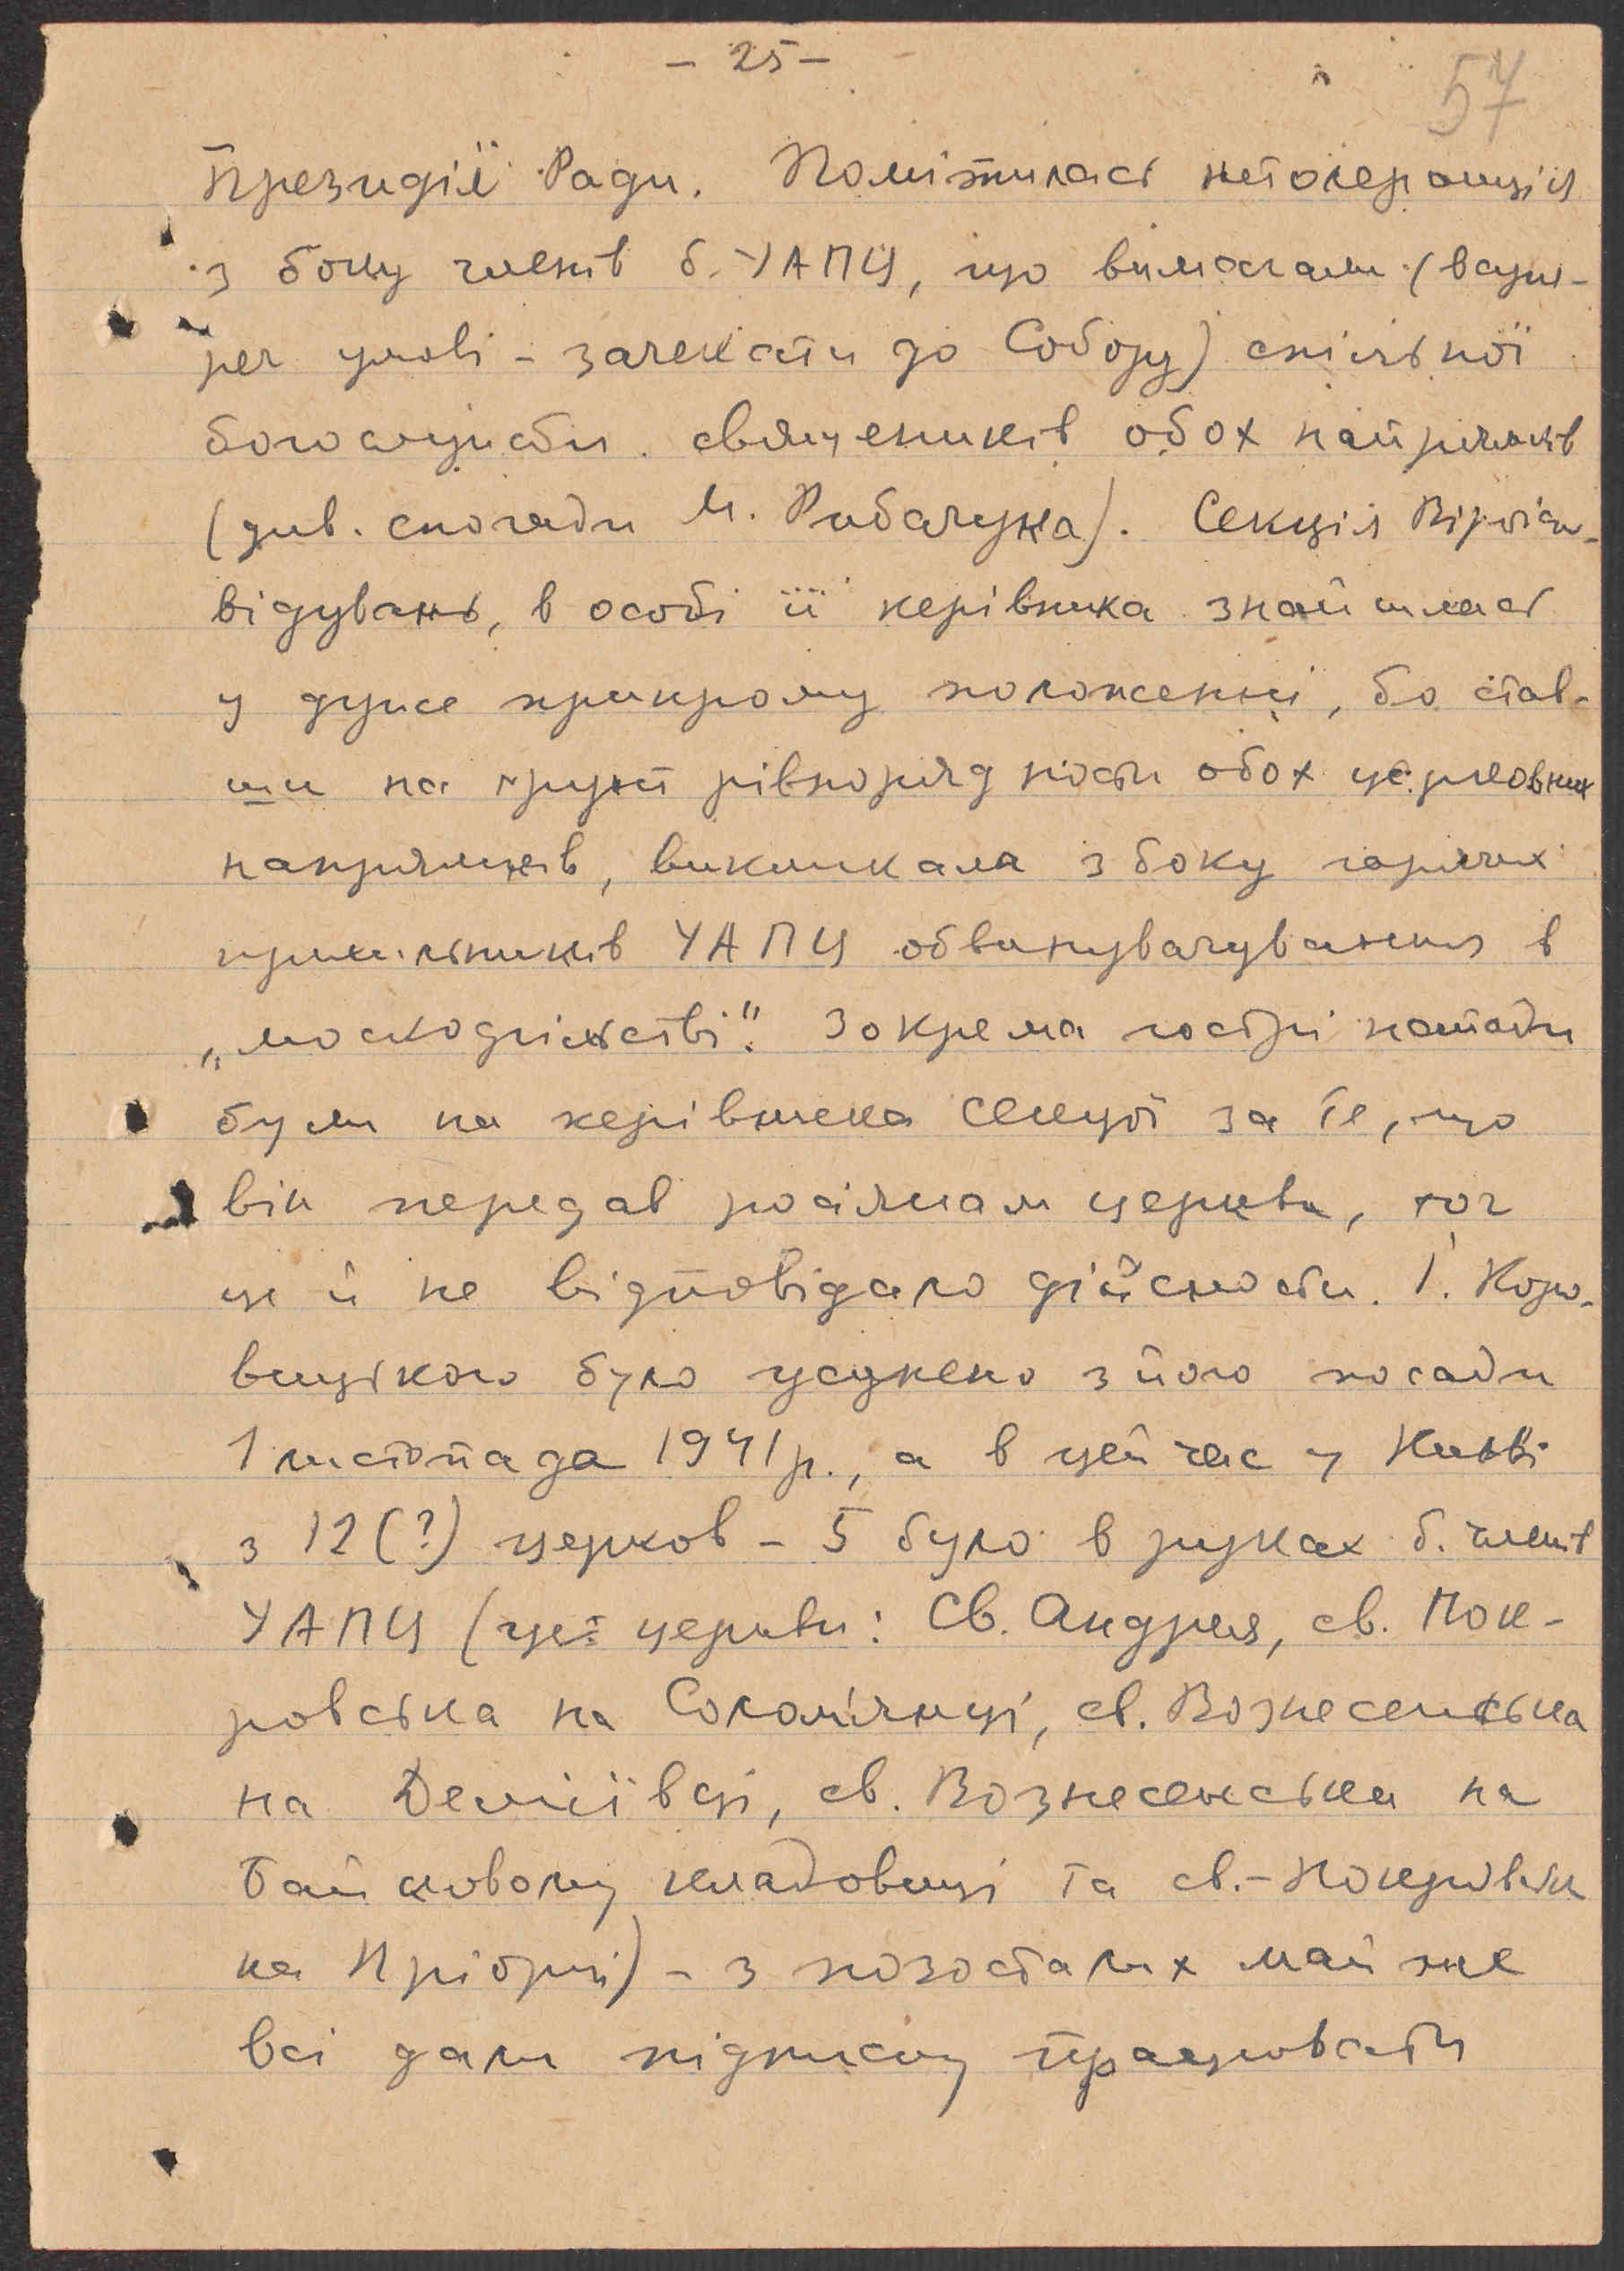 - 25 -
57
Президії Ради. Помітилась нетолеранція
з боку членів б. УАПЦ, що вимагали (всупе-
реч умові - зачекати до Собору) спільної
богослужби священиків обох напрямків
(див. спогади М. Рибачука). Секція Віроіс-
відувань, в особі її керівника знайшлась
у дуже прикрому положенні, бо став-
ши на ґрунт рівнорядности обох церковних
напрямків, викликала з боку гарячих
прихильників УАПЦ обвинувачування в
„москофільстві". Зокрема гострі напади
були на керівника секції за те, що
він передав росіянам церкви, хоч
це й не відповідало дійсности. І. Коро-
вицького було усунено з його посади
1 листопада 1941 р., а в цей час у Київі
з 12 (?) церков - 5 було в руках б. членів
УАПЦ (це церкви: Св. Андрея, св. Пок-
ровська на Солом'янці, св. Вознесенська
на Деміївці, св. Вознесенська на
Байковому кладовищі та св.-Покровська
на Пріорці) - з позосталих майже
всі дали підписку працювати